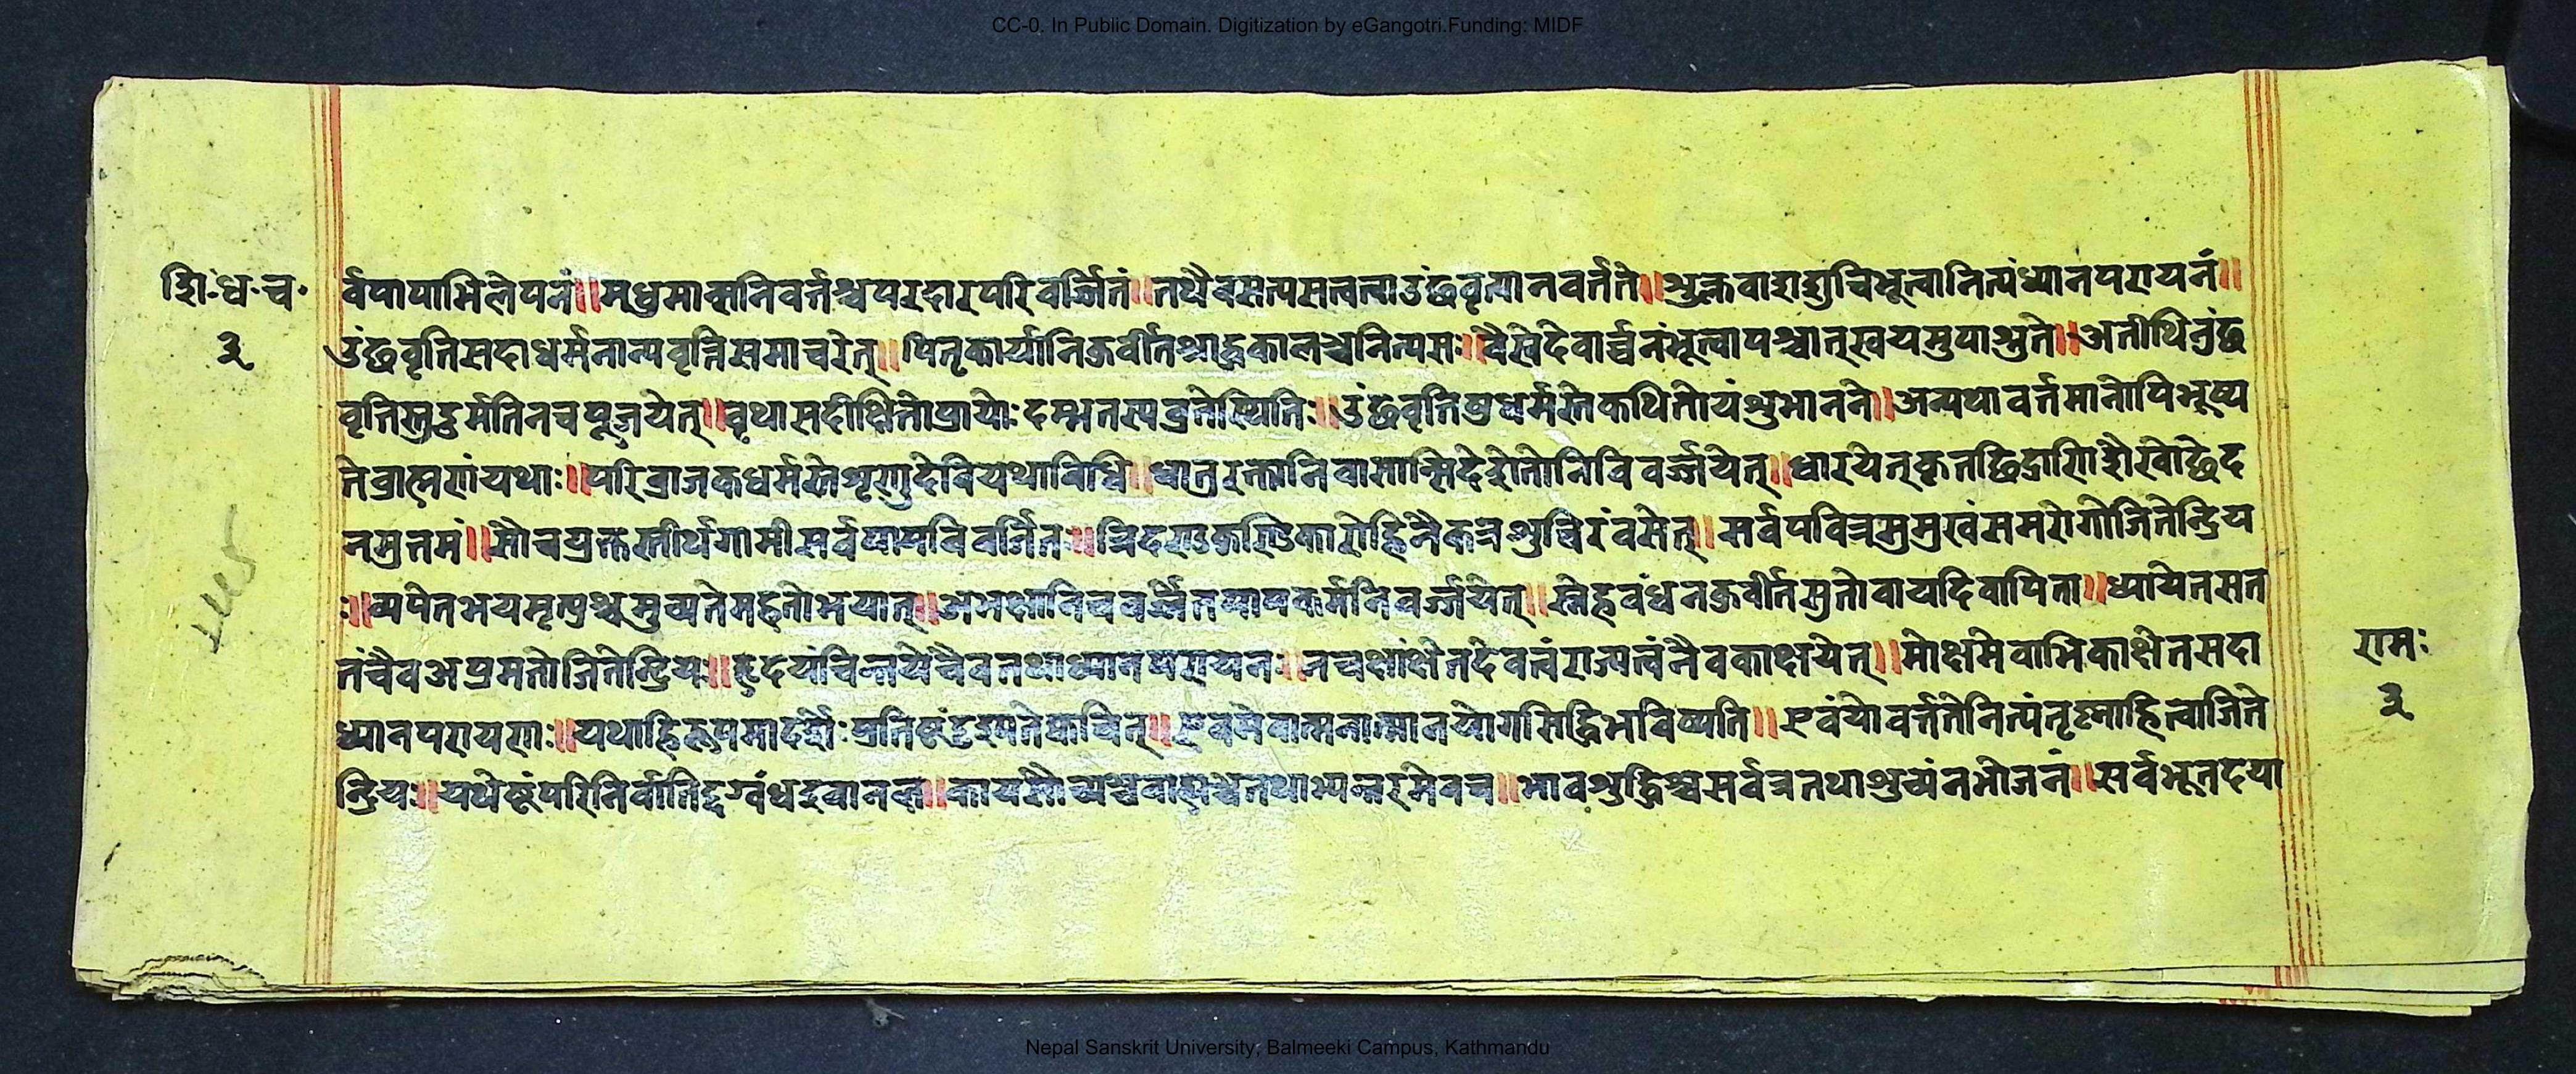 CC-0. In Public Domain. Digitization by eGangotri.Funding: MIDF
शि.ध.च.
३
र्वपापाभिलेपनं॥मधुमान्सनिवर्तश्चपरदारपरिवर्ज्जितं॥तथैवसत्यसलत्वाउंछवृत्यानवर्तते॥शुक्लवाशशुचिभूत्वानित्यंध्यानपरायनं॥
उंछवृतिसदाधर्मनान्यवृत्तिसमाचरेत्॥पितृकार्यानिकुर्वीतश्राद्धकालञ्चनित्यस॥वैस्वेदेवार्च्चनंभूत्वापश्चात्स्वयमुपाश्नुते॥अतीथिनुंछ
वृत्तिस्तुदुर्मतिनचपूजयेत्॥वृथासदीक्षितोप्रायोःदम्भनतस्यव्रतेस्थितिः॥उंछवृतिषुधर्मस्तेकथितोयंशुभानने॥अन्यथावर्त्तमानोपिभूष्य
तेब्राह्मणयथाः॥परिव्राजकधर्मस्तेशृणुदेवियथाविधि॥धातुरक्तानिवासान्सिदेहेतोनिविवर्ज्जयेत्॥धारयेत्कृतछिद्राणिशैखोछेद
नमुत्तमं॥सौचप्रुक्तस्तीर्थगामीसर्वपापविवर्जितः॥त्रिदण्डकुण्डिकारोहिनैकत्रशुचिरंवसेत्॥सर्वपवित्रमुमुखंसमरोगोजितेन्द्रिय
ः॥व्यपेतभयमृत्युश्चमुच्यतेमहतोभयात्॥अभक्षानिचवर्ज्जेतपापकर्मनिवर्ज्जयेत्॥स्नेहवंधनकुर्वीतसुतोवायदिवापिता॥ध्यायेतसत
तंचैवअप्रमतोजितेन्द्रियः॥हृदयंचिन्तयेचैवतथाध्यानपरायनः॥नचक्षांक्षेतदेवत्वंराज्यत्वंनैवकाक्षयेत्॥मोक्षमेवाभिकाक्षेतसदा
ध्यानपरायणः॥यथाहिरूपमादर्शेःप्रतिष्टंदृश्यतेक्वचित्॥एवमेवात्मनात्मानयोगसिद्धिभविष्यति॥एवंयोवर्त्ततेनित्यंतृष्नाहित्वाजिते
न्द्रियः॥यथेष्टंपरिनिर्वातिदग्वंधइवानल॥कायसौच्यश्चवाह्यश्चतथाभ्यन्तरमेवच॥भावशुद्धिश्चसर्वत्रतथाशुच्यंनभोजनं॥सर्वभूतदया
रामः
३
Nepal Sanskrit University, Balmeeki Campus, Kathmandu